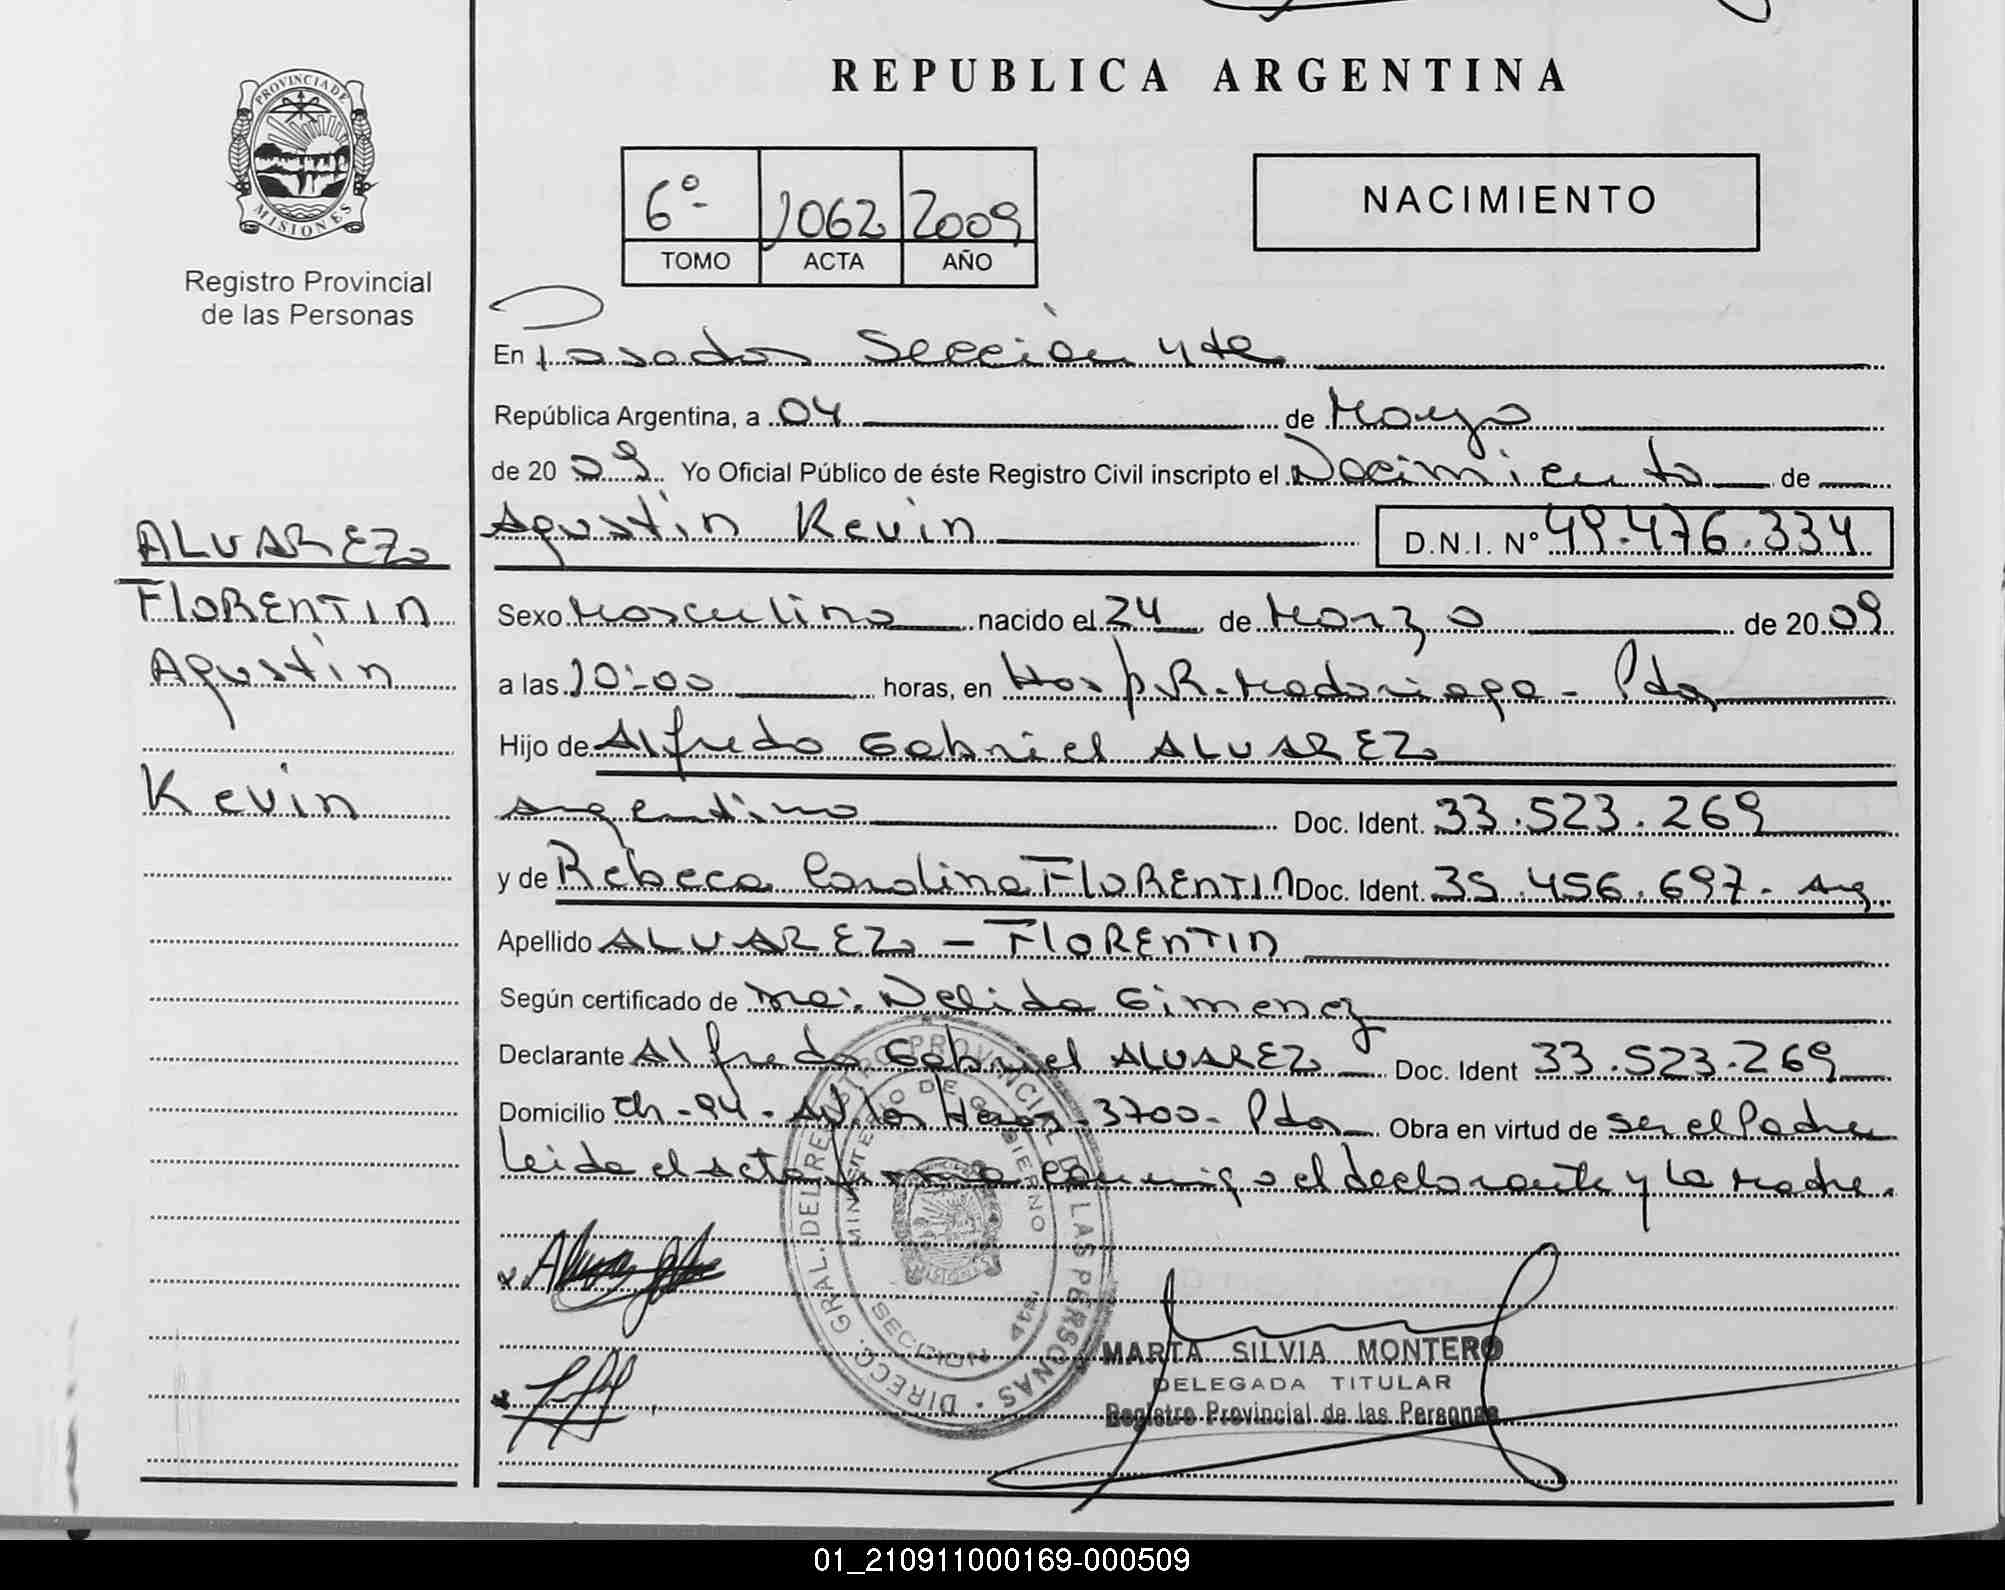 REPUBLICA ARGENTINA
PROVINCIA DE MISIONES
Registro Provincial
de las Personas
6º 1062 2009
TOMO ACTA AÑO
NACIMIENTO
En Posadas Sección 4ta
República Argentina, a 04 de Mayo
de 2009 Yo Oficial Público de éste Registro Civil inscripto el Nacimiento de
Agustin Kevin D.N.I. Nº 49.476.334
ALVAREZ
FLORENTIN
Agustin
Kevin
Sexo Masculino nacido el 24 de Marzo de 2009
a las 10:00 horas, en Hosp. R. Madariaga - Pdas
Hijo de Alfredo Gabriel ALVAREZ
Argentino Doc. Ident. 33.523.269
y de Rebeca Carolina FLORENTIN Doc. Ident. 35.456.697 - Arg.
Apellido ALVAREZ - FLORENTIN
Según certificado de Nelida Gimenez
Declarante Alfredo Gabriel ALVAREZ Doc. Ident 33.523.269
Domicilio Ch - 94 - los 3700 - Pdas Obra en virtud de ser el Padre
Leida el acta firma conmigo el declarante y la Madre.
DIRECC. GRAL. DEL REGISTRO PROVINCIAL DE LAS PERSONAS
MINISTERIO DE GOBIERNO
SECCION 4ta.
MARTA SILVIA MONTERO
DELEGADA TITULAR
Registro Provincial de las Personas
01_210911000169-000509